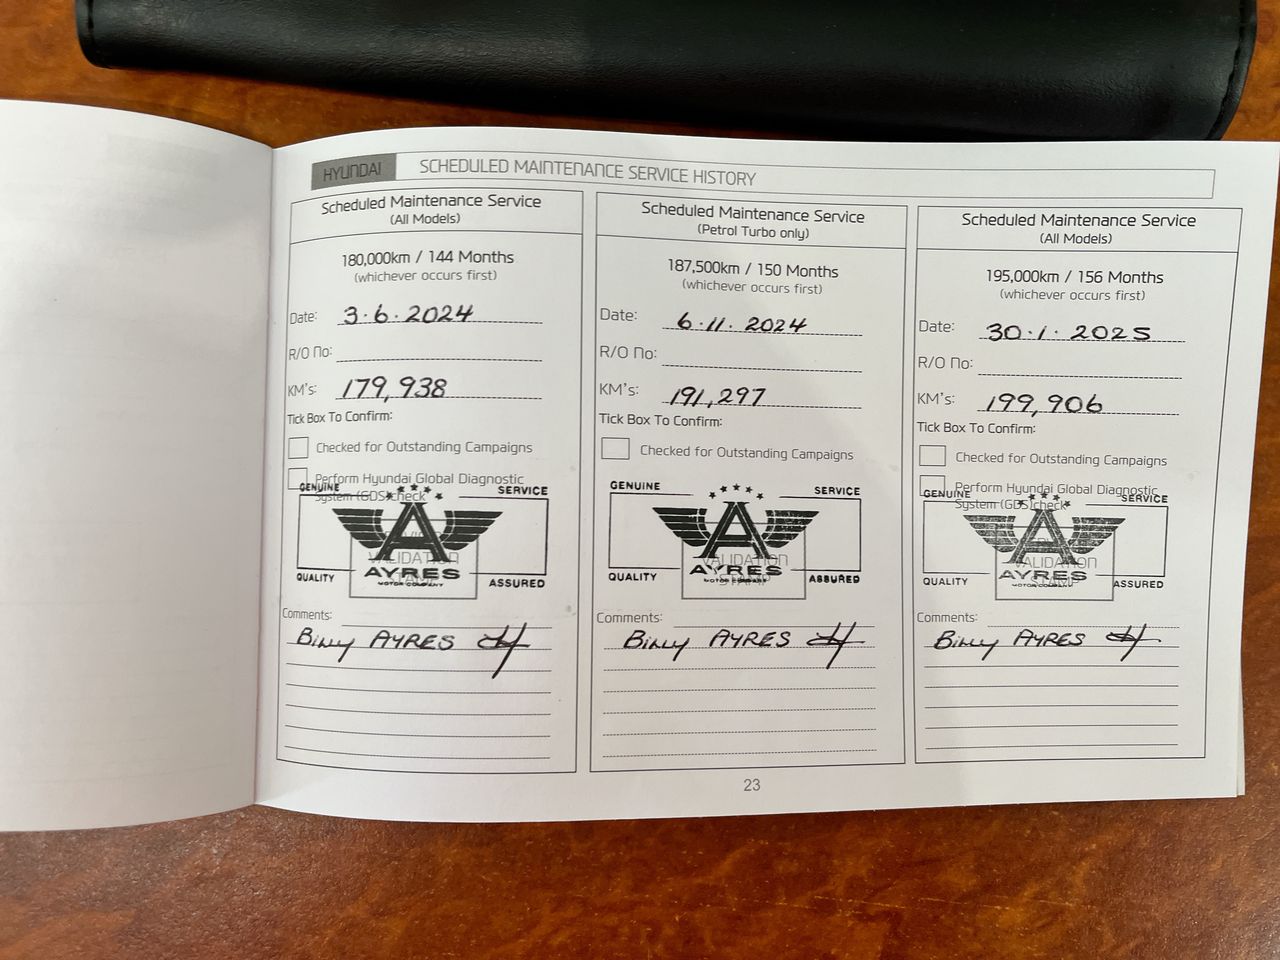 HYUNDAI SCHEDULED MAINTENANCE SERVICE HISTORY
Scheduled Maintenance Service
(All Models)
180,000km / 144 Months
(whichever occurs first)
Date: 3.6.2024
R/O No:
KM's: 179,938
Tick Box To Confirm:
Checked for Outstanding Campaigns
Perform Hyundai Global Diagnostic
System (GDS) check
GENUINE SERVICE
VALIDATION
AYRES
MOTOR COMPANY
QUALITY ASSURED
Comments:
Billy AYRES
Scheduled Maintenance Service
(Petrol Turbo only)
187,500km / 150 Months
(whichever occurs first)
Date: 6.11.2024
R/O No:
KM's: 191,297
Tick Box To Confirm:
Checked for Outstanding Campaigns
GENUINE SERVICE
VALIDATION
AYRES
MOTOR COMPANY
STAMP
QUALITY ASSURED
Comments:
Billy AYRES
Scheduled Maintenance Service
(All Models)
195,000km / 156 Months
(whichever occurs first)
Date: 30.1.2025
R/O No:
KM's: 199,906
Tick Box To Confirm:
Checked for Outstanding Campaigns
Perform Hyundai Global Diagnostic
System (GDS) check
GENUINE SERVICE
VALIDATION
AYRES
MOTOR COMPANY
QUALITY ASSURED
Comments:
Billy AYRES
23